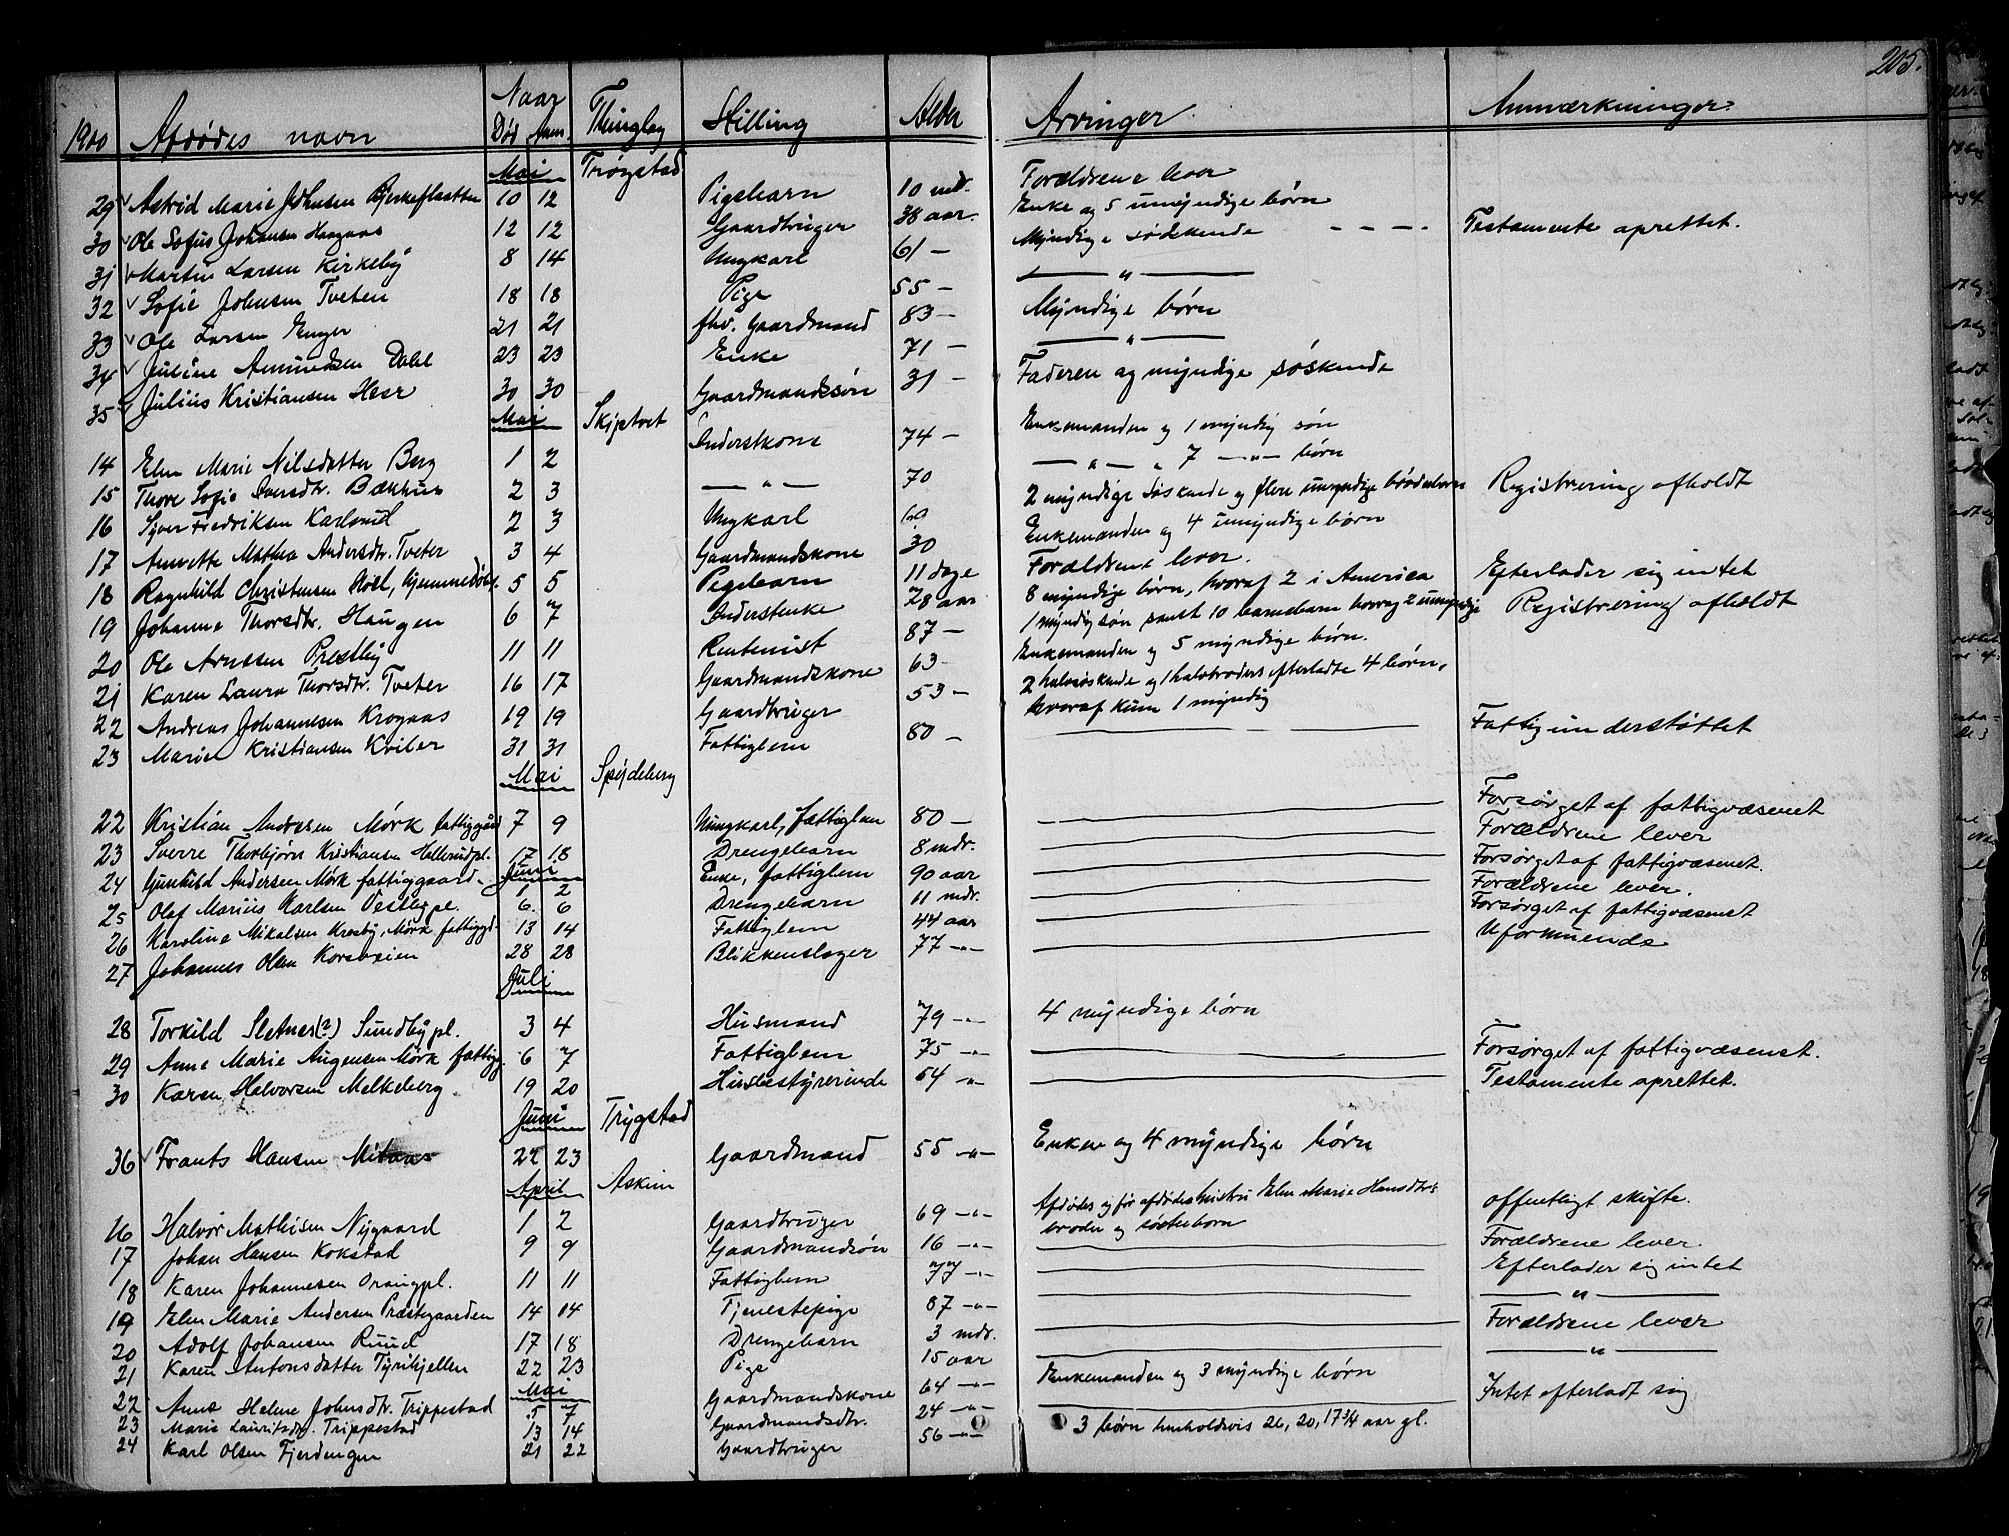 205.
1900 Afdødes navn Naar Død Anm. Thinglag Stilling Alder Arvinger. Anmærkninger.
Mai Trøgstad
29 Astrid Marie Johnsen Bjerkeflaatten 10 12 Pigebarn 10 mdr. Forældrene lever
30 Ole Sofus Johansen Haagaas 12 12 Gaardbruger 38 aar. Enke og 5 umyndige børn
31 Martin Larsen Kirkeby 8 14 Ungkarl 61 — Myndige sødskende — — — — Testamente oprettet.
32 Sofie Johnsen Tveten 18 18 Pige 55 — — „ —
33 Ole Larsen Enger 21 21 fhv. Gaardmand 83 — Myndige børn
34 Juline Amundsen Dahl 23 23 Enke 71 — — „ —
35 Julius Kristiansen Heer 30 30 Gaardmandssøn 31 — Faderen og myndige søskende
Mai Skiptvet
14 Elen Marie Nilsdatter Berg 1 2 Inderstkone 74 — Enkemanden og 1 myndig søn
15 Thore Sofie Iversdtr. Bækhus 2 3 — „ — 70 — „ — „ 7 — „ — børn
16 Syver Fredriksen Karlsrud 2 3 Ungkarl 60 2 myndige søskende og flere umyndige broderbørn Registrering afholdt
17 Annette Mathea Andersdtr. Tveter 3 4 Gaardmandskone 30 Enkemanden og 4 umyndige børn
18 Ragnhild Christensen Hoel, hjemmedøbt. 5 5 Pigebarn 11 dage Forældrene lever.
19 Johanne Thorsdtr. Haugen 6 7 Inderstenke 78 aar 8 myndige børn, hvoraf 2 i America Efterlader sig intet
20 Ole Arnesen Prestby 11 11 Rentenist 87 — 1 myndig søn samt 10 barnebarn hvoraf 2 umyndige Registrering afholdt
21 Karen Laura Thorsdtr. Tveter 16 17 Gaardmandskone 63 — Enkemanden og 5 myndige børn.
22 Andreas Johannesen Krognaas 19 19 Gaardbruger 53 — 2 halvsøskende og 1 halvbroders efterladte 4 børn,
hvoraf kun 1 myndig
23 Marie Kristiansen Kviler 31 31 Fattiglem 80 — Fattigunderstøttet
Mai Spydeberg
22 Kristian Andresen Mørk fattiggård 7 9 Ungkarl, fattiglem 80 — Forsørget af fattigvæsenet
23 Sverre Thorbjørn Kristiansen Hellerudpl. 17 18 Drengebarn 8 mdr. Forældrene lever
Juni
24 Gunhild Andersen Mørk fattiggaard 1 2 Enke, fattiglem 90 aar Forsørget af fattigvæsenet.
25 Olaf Marius Karlsen Vestbypl. 6. 6 Drengebarn 11 mdr. Forældrene lever.
26 Karoline Mikalsen Kresby, Mørk fattiggd. 13 14 Fattiglem 44 aar Forsørget af fattigvæsenet
27 Johannes Olsen Korsveien 28 28 Blikkenslager 77 -„- Uformuende
Juli
28 Torkild Sletnes(?) Sundbypl. 3 4 Husmand 79 -„- 4 myndige børn
29 Anne Marie Augensen Mørk fattigg. 6 7 Fattiglem 75 -„- Forsørget af fattigvæsenet.
30 Karen Halvorsen Melkeberg 19 20 Husbestyrerinde 64 -„- Testamente oprettet.
Juni Trygstad
36 Frants Hansen 22 23 Gaardmand 55 -„- Enken og 4 myndige børn
April Askim
16 Halvor Mathisen Nygaard 1 2 Gaardbruger 69 -„- Afdødes og før afdøde hustru Elen Marie Hansdtr.s offentligt skifte.
broder og søsterbørn
17 Johan Hansen Kokstad 9 9 Gaardmandssøn 16 -„- Forældrene lever.
18 Karen Johannesen Oraugpl. 11 11 Fattiglem 77 -„- Efterlader sig intet
19 Elen Marie Andersen Præstegaarden 14 14 Tjenestepige 87 -„- — „ —
20 Adolf Johansen Ruud 17 18 Drengebarn 3 mdr. Forældrene lever
21 Karen Antonsdatter Tyrihjellen 22 23 Pige 15 aar — „ —
Mai
22 Anne Helene Johnsdtr. Trippestad 5 7 Gaardmandskone 64 -„- Enkemanden og 3 myndige børn
23 Marie Lauritsdtr. Trippestad 13 14 Gaardmandsdtr. 24 -„- Intet efterladt sig
24 Karl Olsen Fjerdingen 21 22 Gaardbruger 56 -„- 3 børn henholdsvis 26, 20, 17 3/4 aar gl.